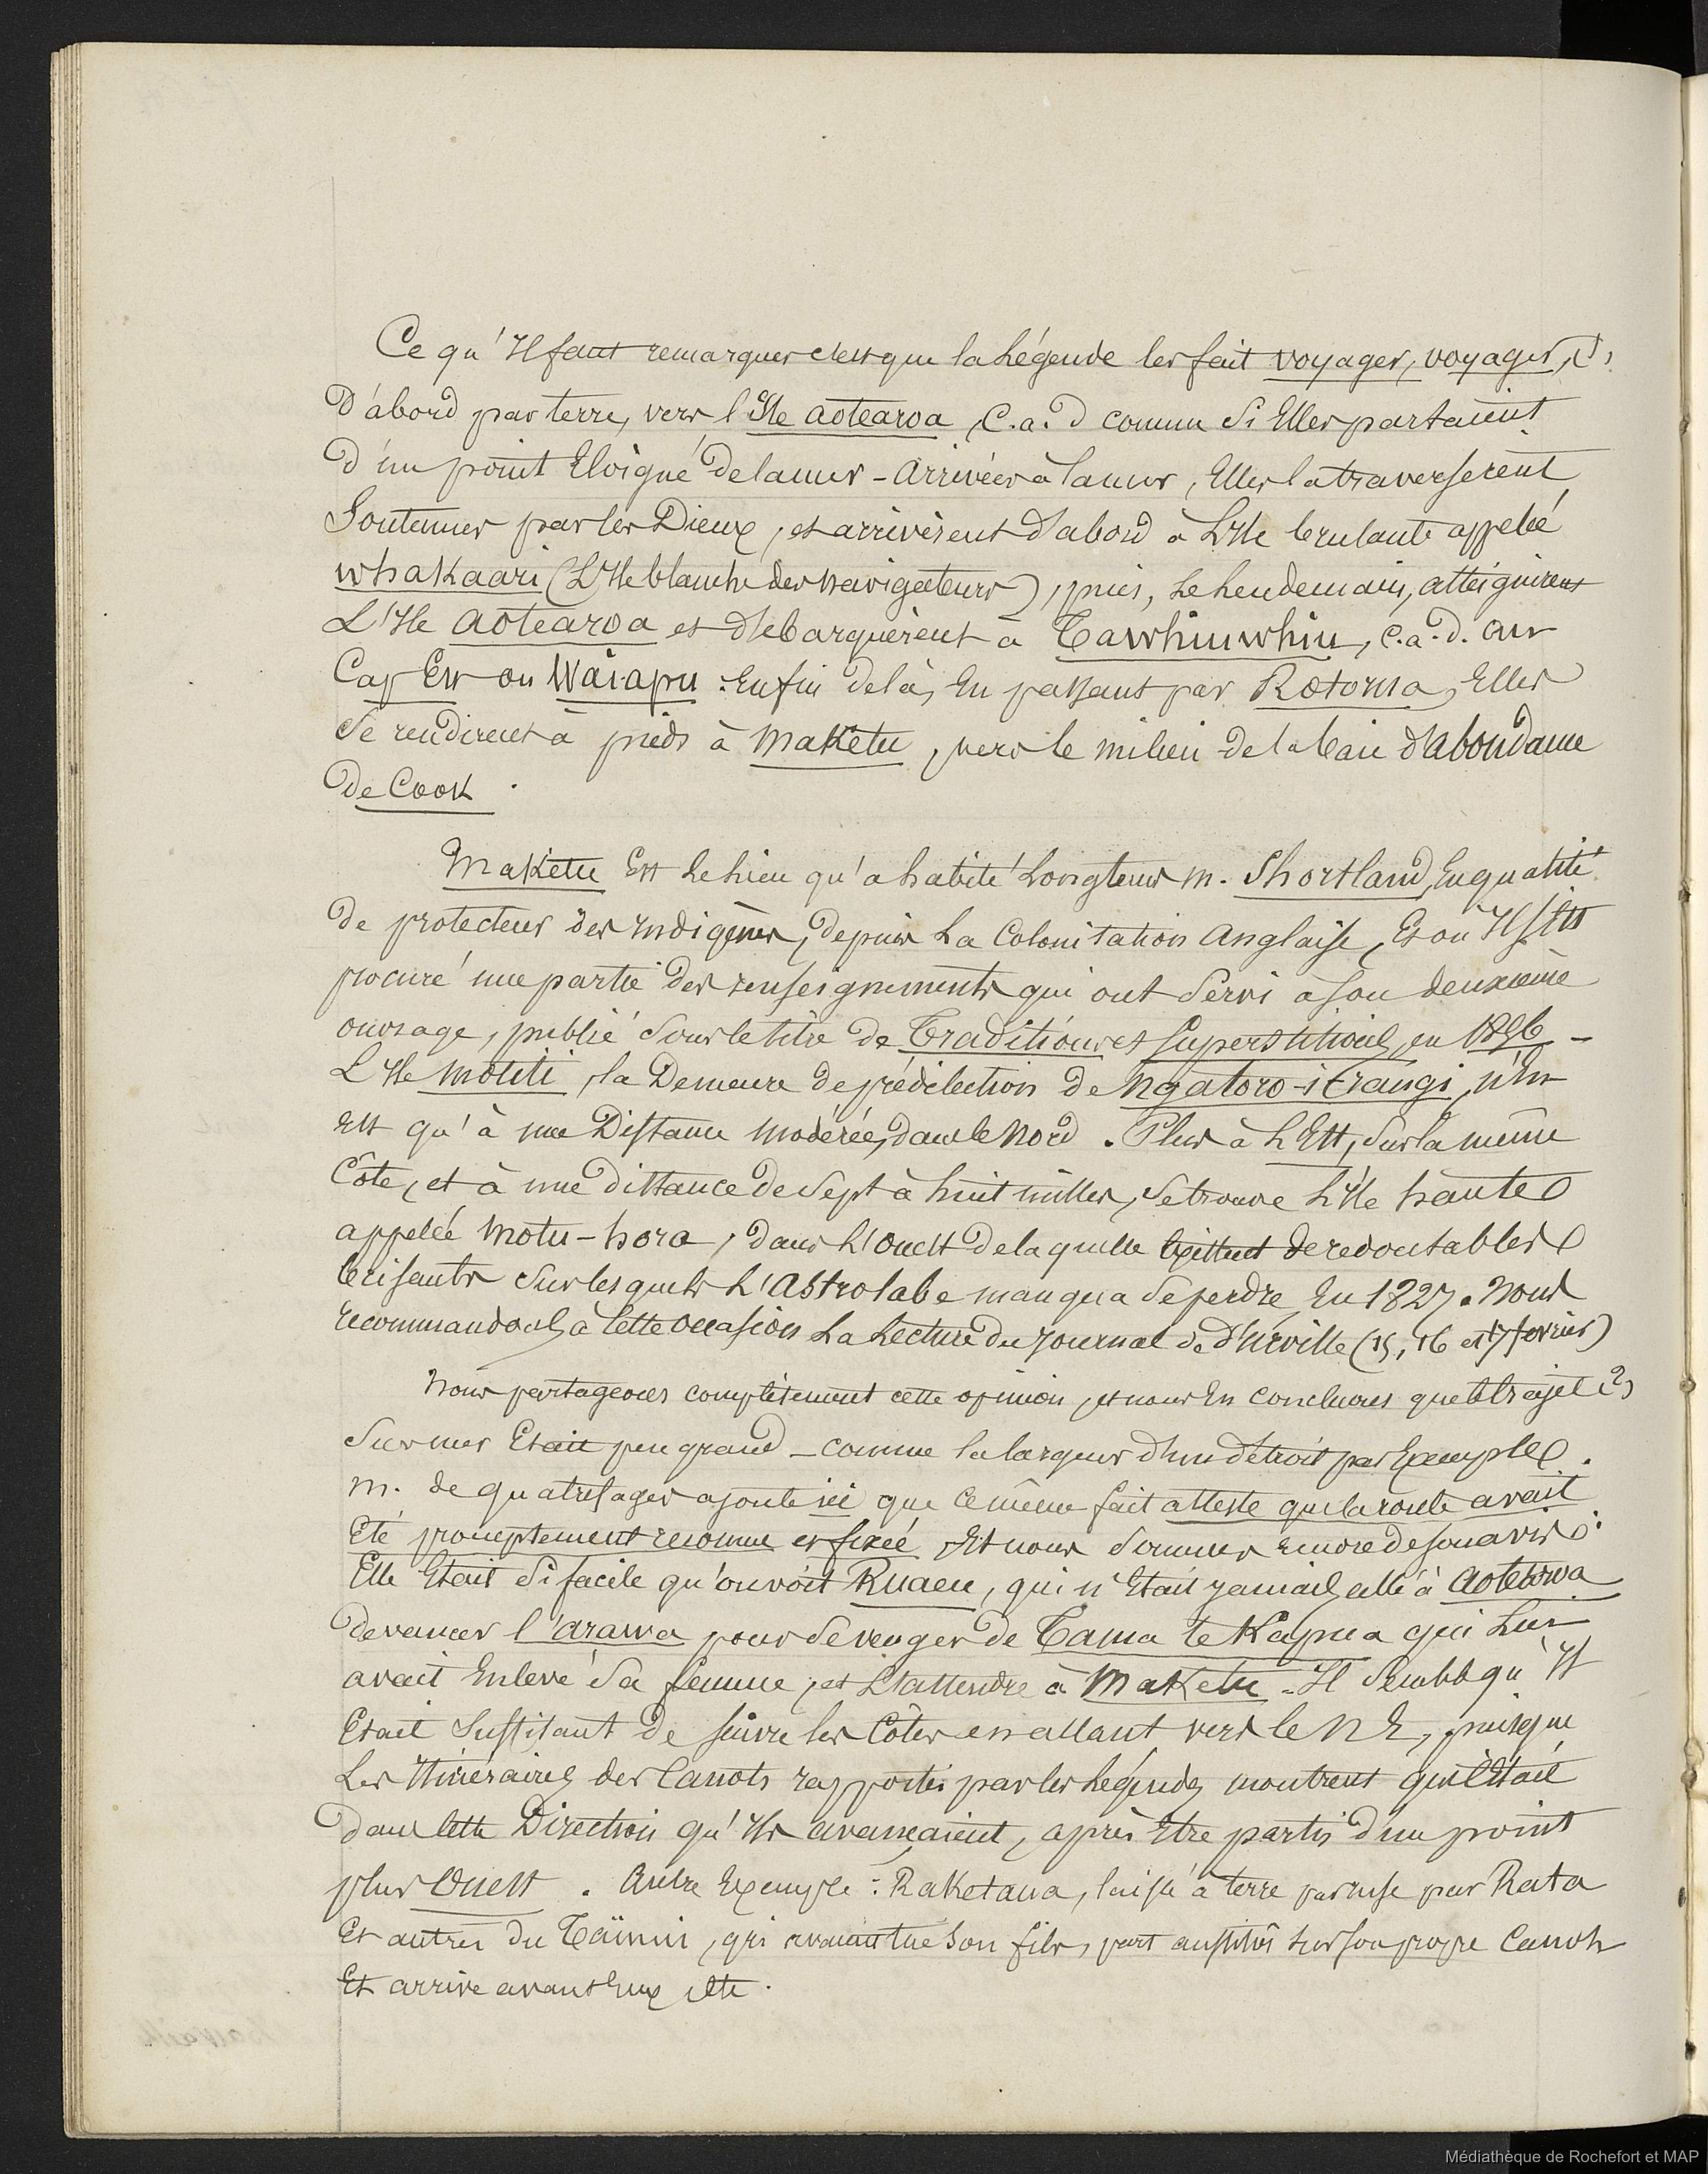 Ce qu'Il faut remarquer c'est que la Légende les fait voyager, voyager, (1)
D'abord par terre, vers l'Ile aotearoa, C.a.d comme Si Elles partaient
d'un point Eloigné De la mer - arrivées à la mer, Elles la traverserent
Soutenues par les Dieux, et arrivèrent d'abord à L'Ile brulante appelée
whakaari (L'Ile blanche des navigateurs), puis, Le Lendemain, atteignirent
L'Ile aotearoa et débarquèrent à Tawhiuwhiu, c.a.d. au
Cap Est ou Waiapu : Enfin de là, En passant par Rotorua, Elles
Se rendirent à pieds à Maketu, vers le milieu de la baie d'abondance
De Cook.
Maketu Est Le Lieu qu'a habité Longtems M. Shortland, En qualité
de protecteur des indigènes, Depuis La Colonisation anglaise, Et où Il s'est
procuré une partie des renseignements qui ont Servi à son deuxième
ouvrage, publié Sous le titre de Traditions et Superstitions, en 1856 -
L'Ile Motiti, la Demeure de prédilection de Ngatoro-i-rangi, n'en
Est qu'à une Distance modérée, dans le Nord. Plus à L'Est, Sur la même
Côte, et à une distance de Sept à huit milles, Se trouve L'Ile haute
appelée Motu-hora, dans L'ouest de laquelle existent de redoutables
brisants Sur lesquels L'Astrolabe manqua Se perdre En 1827. Nous
recommandons à cette occasion La Lecture du Journal de D'urville (15, 16 et 17 fevrier)
Nous partageons complètement cette opinion, et nous En concluons que le trajet (2)
Sur mer Etait peu grand - comme la largeur d'un détroit par Exemple.
M. de quatrefages ajoute ici que ce même fait atteste que la route avait
Eté promptement reconnue et fixée. Et nous Sommes encore de son avis :
Elle Etait Si facile qu'on voit Ruaeu, qui n'Etait jamais allé à aotearoa
devancer l'arawa pour Se venger de Tama te Kapua qui Lui
avait Enlevé Sa femme, et L'attendre à Maketu. Il Semble qu'Il
Etait Suffisant De suivre les Côtes en allant vers le N E, puisque
Les Itinéraires des Canots rapportés par les Légendes montrent que c'était
dans cette Direction qu'Ils avançaient, après Etre partis d'un point
plus Ouest. Autre Exemple : Raketaua, laissé à terre par ruse par Rata
Et autres du Taïnui, qui avaient tué Son fils, part aussitôt sur son propre Canot
Et arrive avant Eux, etc.
Médiathèque de Rochefort et MAP